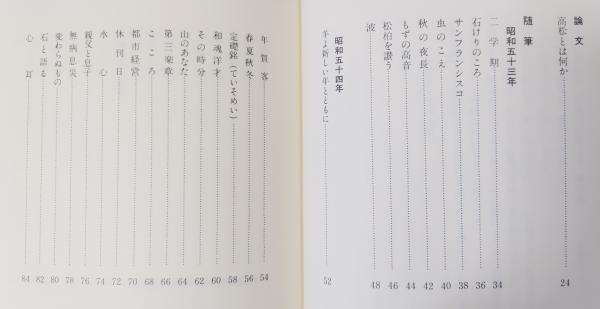 論文
高松とは何か 24
随筆
昭和五十三年
二学期 34
石けりのころ 36
サンフランシスコ 38
虫のこえ 40
秋の夜長 42
もずの高音 44
松柏を讃う 46
波 48
昭和五十四年
羊よ新しい年とともに 52
年賀客 54
春夏秋冬 56
定礎銘(ていそめい) 58
和魂洋才 60
その時分 62
山のあなた 64
第三楽章 66
こころ 68
都市経営 70
休刊日 72
水心 74
親父と息子 76
無病息災 78
変わらぬもの 80
石と語る 82
心耳 84